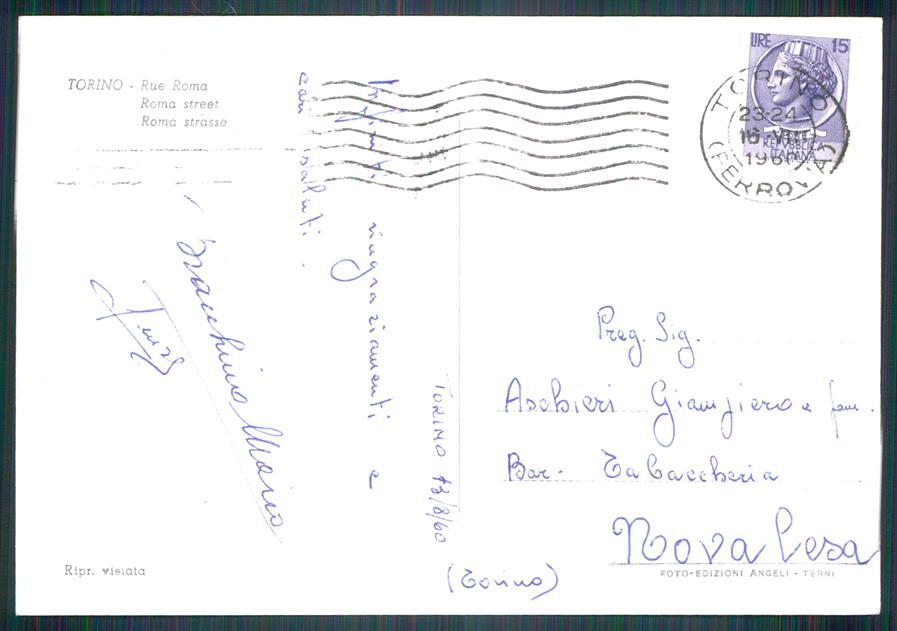 TORINO - Rue Roma
Roma street
Roma strasse
LIRE 15
REPVBBLICA
ITALIANA
TORINO
23-24
16-
1960
(FERROVIA)
Infiniti
ringraziamenti e
cari saluti.
Bracchino Mario
TORINO 13/8/60
Preg. Sig.
Aschieri Giampiero e fam.
Bar - Tabaccheria
Novalesa
(Torino)
Ripr. vietata
FOTO-EDIZIONI ANGELI - TERNI